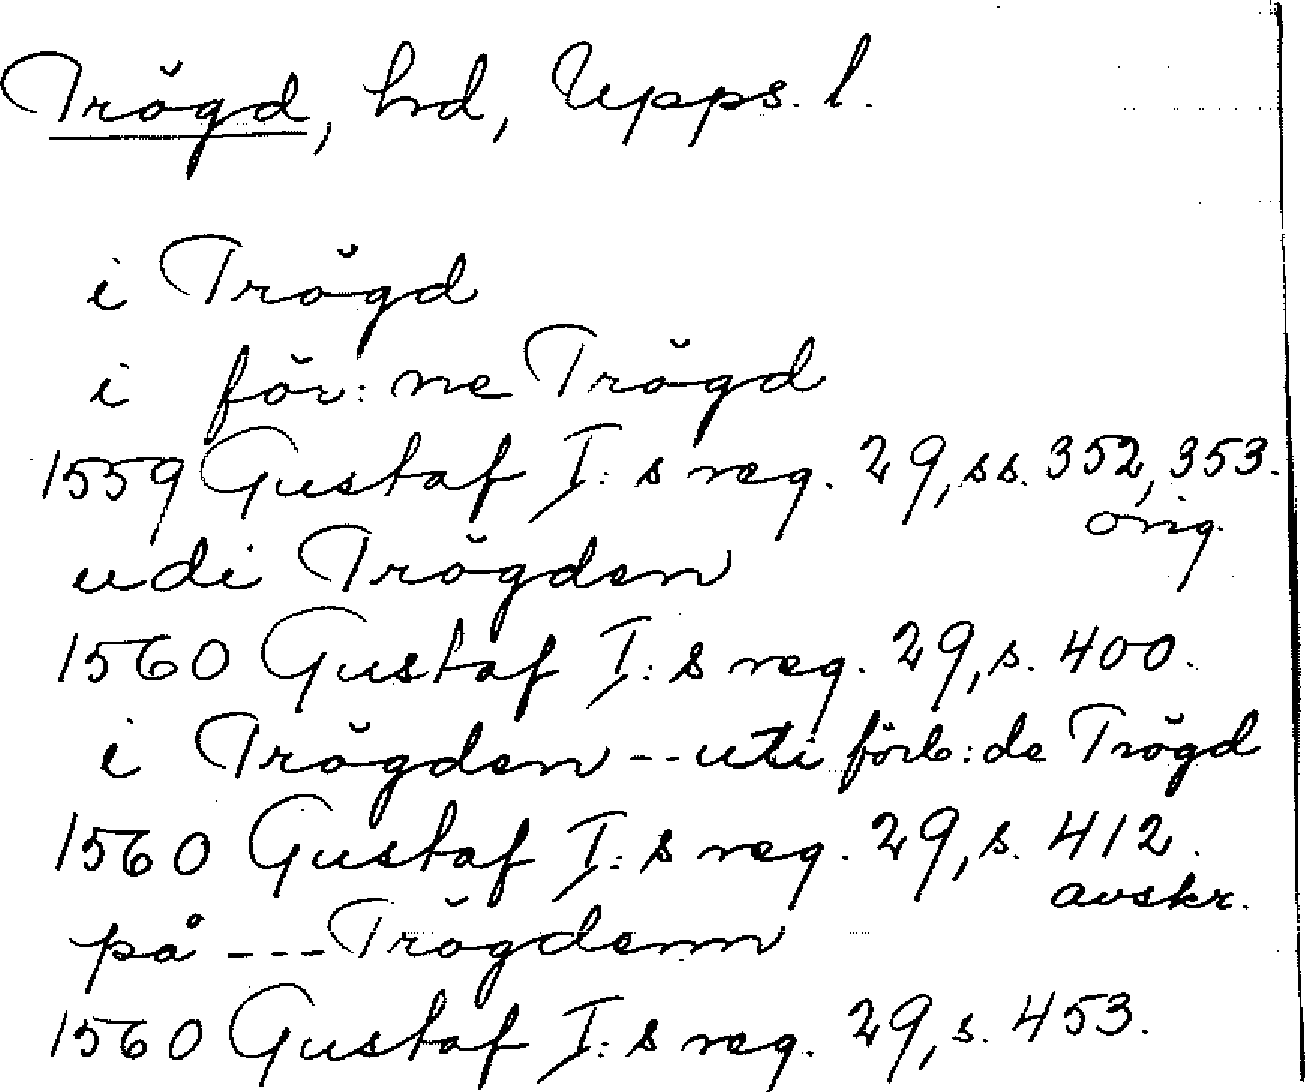 Trögd, hd, Upps. l.
i Trögd
i för:ne Trögd
1559 Gustaf I:s reg. 29, ss. 352, 353.
orig.
udi Trögden
1560 Gustaf I:s reg. 29, s. 400.
i Trögden -- uti förb:de Trögd
1560 Gustaf I:s reg. 29, s. 412.
avskr.
på --- Trögdenn
1560 Gustaf I:s reg. 29, s. 453.